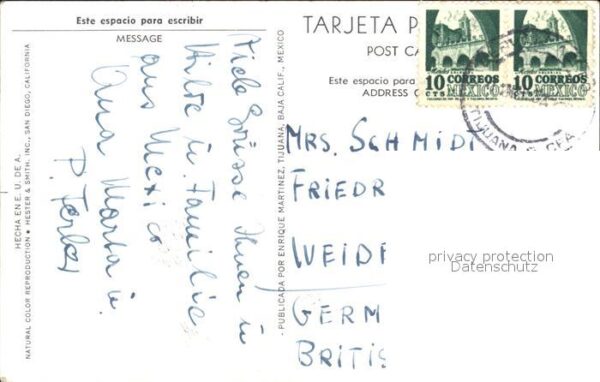 Este espacio para escribir
MESSAGE
Viele Grüsse Ihnen u
Ihrer Familie
aus Mexico
Ana Marta u.
P.
HECHA EN E. U. DE A.
NATURAL COLOR REPRODUCTION • HESTER & SMITH, INC., SAN DIEGO, CALIFORNIA
- PUBLICADA POR ENRIQUE MARTINEZ, TIJUANA, BAJA CALIF., MEXICO
TARJETA P
POST CA
Este espacio para
ADDRESS O
10 CORREOS
CTS MEXICO
10 CORREOS
CTS MEXICO
TIJUANA
MRS. SCHMIDT
FRIEDR
WEIDE
GERM
BRITIS
privacy protection
Datenschutz